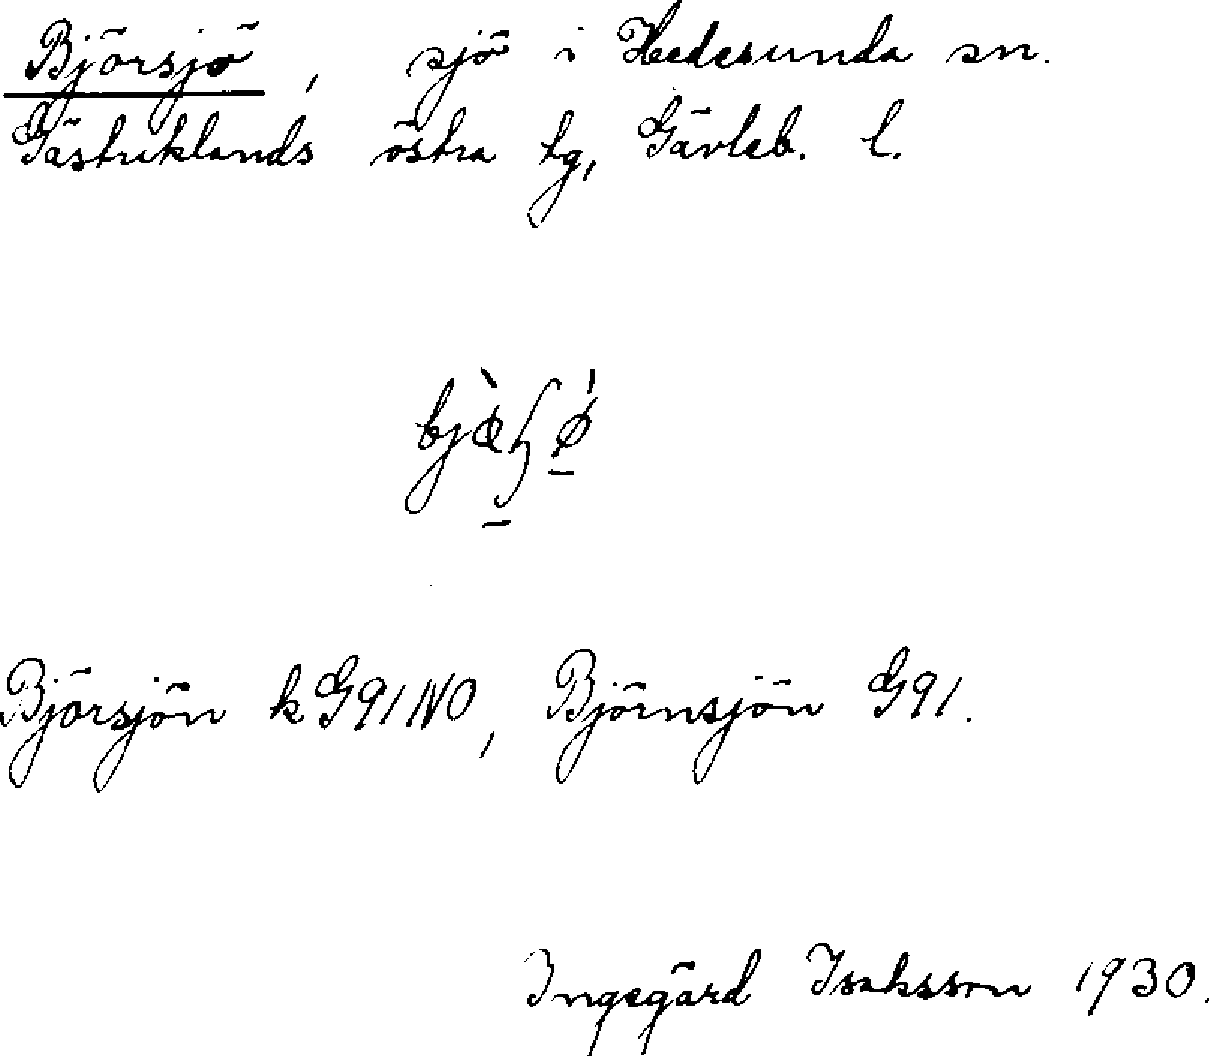 Björsjö, sjö i Hedesunda sn.
Gästriklands östra tg, Gävleb. l.
Björsjön k G91NO, Björnsjön G91.
Ingegärd Isaksson 1930.